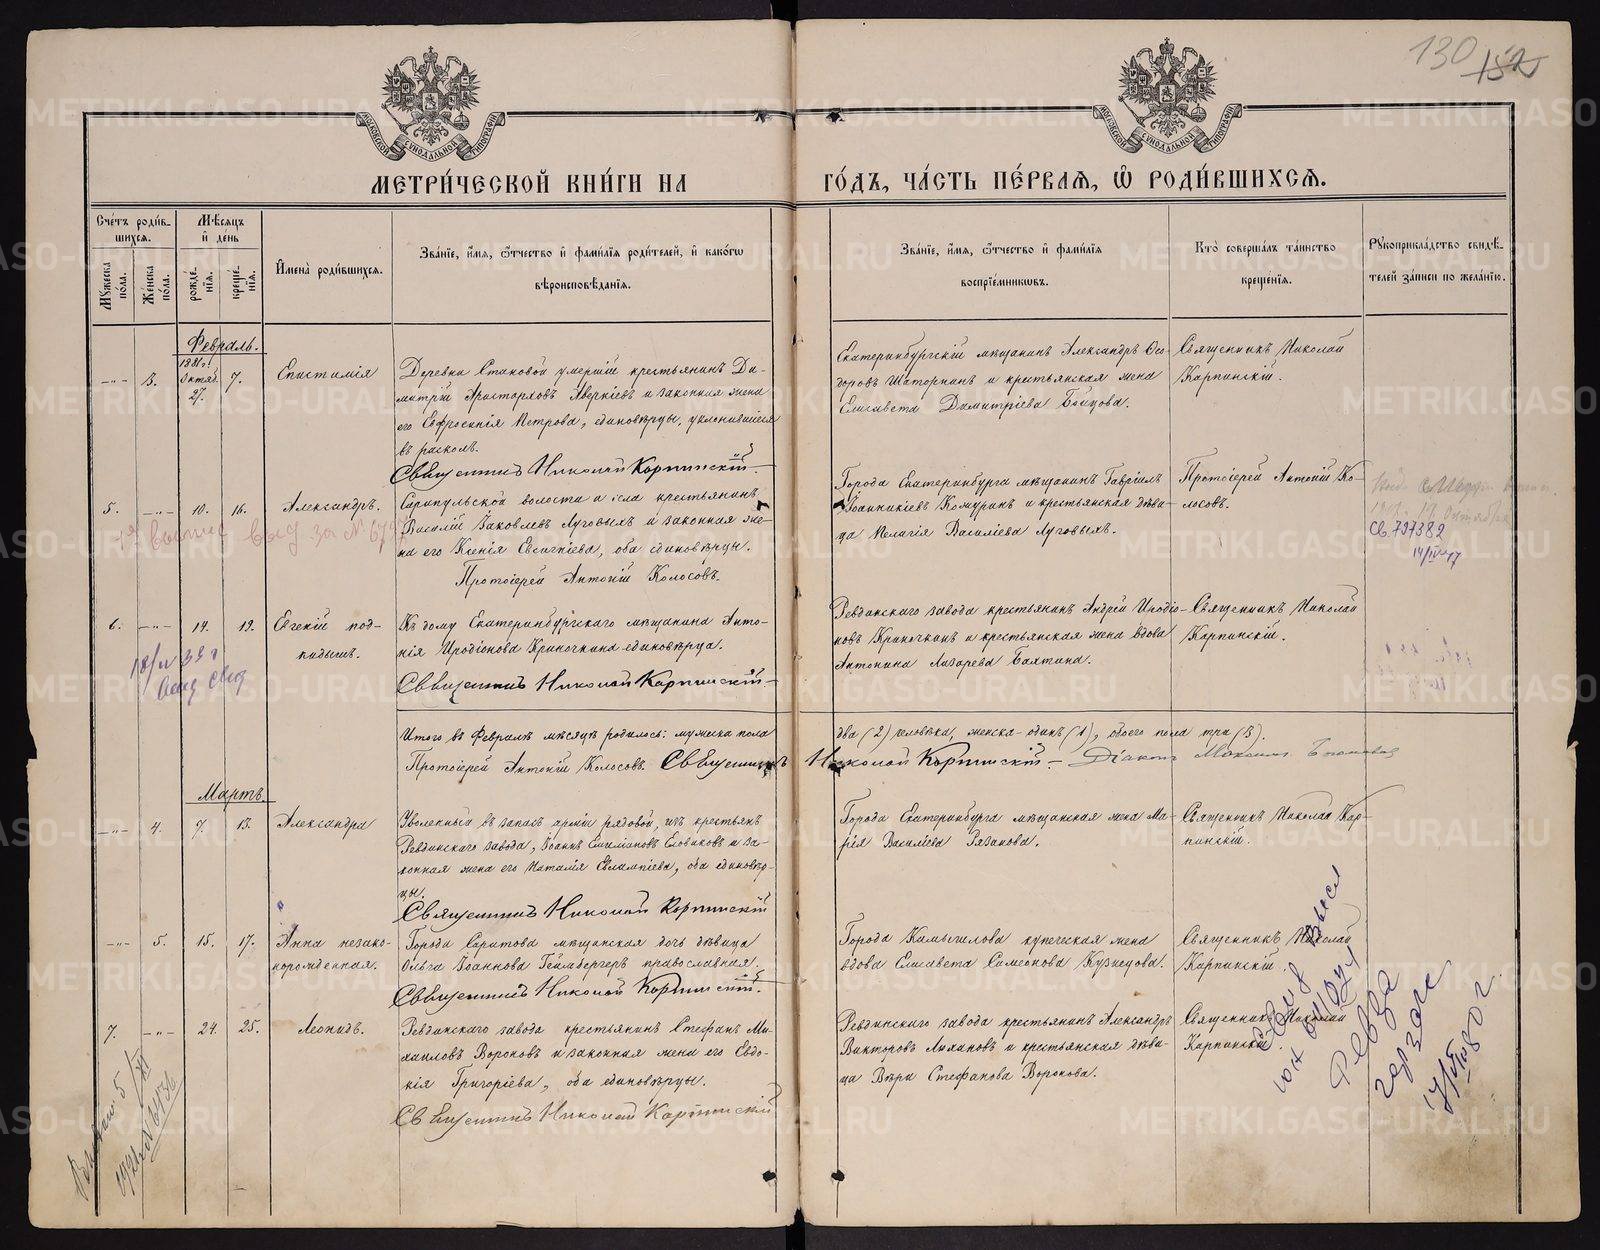 130
МОСКОВСКОЙ СУНОДАЛЬНОЙ ТИПОГРАФІИ
МОСКОВСКОЙ СУНОДАЛЬНОЙ ТИПОГРАФІИ
МЕТРИ́ЧЕСКОЙ КНИ́ГИ НА
ГО́ДЪ, ЧА́СТЬ ПЕ́РВАЯ, Ѽ РОДИ́ВШИХСЯ.
Сче́тъ роди́в-
шихся.
Мѣ́сяцъ
и҆ де́нь
Му́жеска по́ла.
Же́нска по́ла.
рожде́-
нїя.
креще́-
нїя.
И҆мена̀ роди́вшихся.
Зва́нїе, и҆́мя, ѻ҆́тчество и҆ фами́лїя роди́телей, и҆ како́гѡ
вѣроисповѣ́данїя.
Зва́нїе, и҆́мя, ѻ҆́тчество и҆ фами́лїя
воспрїе́мникѡвъ.
Кто̀ соверша́лъ та́инство
креще́нїя.
Рꙋкоприкла́дство свидѣ́-
телей за́писи по жела́нїю.
Февраль.
3.
Октяб.
27.
7.
Епистимія
Деревни Становой умершій крестьянинъ Ди-
митрій Аристарховъ Аверкіевъ и законная жена
его Евфросинія Петрова, единовѣрцы, уклонившіеся
въ расколъ.
Священникъ Николай Карпинскій
Екатеринбургскій мѣщанинъ Александръ Ѳео-
доровъ и крестьянская жена
Елисавета Димитріева
Священникъ Николай
Карпинскій.
5.
10.
16.
Александръ.
Сарапульской волости и села крестьянинъ
Василій Іаковлевъ Луговыхъ и законная же-
на его Ксенія Евсигніева, оба единовѣрцы.
Протоіерей Антоній Колосовъ.
Города Екатеринбурга мѣщанинъ Гавріилъ
Іоанникіевъ и крестьянская дѣви-
ца Пелагія Василіева Луговыхъ.
Протоіерей Антоній Ко-
лосовъ.
Св. 737382
6.
14.
19.
Евгеній под-
кидышъ.
Къ дому Екатеринбургскаго мѣщанина Анто-
нія Иродіонова Криночкина единовѣрца.
Священникъ Николай Карпинскій
Ревдинскаго завода крестьянинъ Андрей Иродіо-
новъ Криночкинъ и крестьянская жена вдова
Антонина Лазарева Бахтина.
Священникъ Николай
Карпинскій.
Итого въ Февралѣ мѣсяцѣ родилось: мужска пола
два (2) человѣка, женска-одинъ (1), обоего пола три (3).
Протоіерей Антоній Колосовъ. Священникъ
Николай Карпинскій. Діаконъ
Мартъ.
4.
7.
13.
Александра
Уволенный въ запасъ арміи рядовой, изъ крестьянъ
Ревдинскаго завода, Іоаннъ и за-
конная жена его Наталія Евлампіева, оба единовѣр-
цы.
Священникъ Николай Карпинскій
Города Екатеринбурга мѣщанская жена Ма-
рія Василіева Рязанова.
Священникъ Николай Кар-
пинскій.
5.
15.
17.
Анна незако-
норожденная.
Города Саратова мѣщанская дочь дѣвица
Ольга Іоаннова Геймбергеръ православная.
Священникъ Николай Карпинскій.
Города Камышлова купеческая жена
вдова Елисавета Симеонова Кузнецова.
Священникъ Николай
Карпинскій.
7.
24.
25.
Леонидъ.
Ревдинскаго завода крестьянинъ Стефанъ Ми-
хаиловъ Вороновъ и законная жена его Евдо-
кія Григоріева, оба единовѣрцы.
Священникъ Николай Карпинскій
Ревдинскаго завода крестьянинъ Александръ
Викторовъ и крестьянская дѣви-
ца Вѣра Стефанова Воронова.
Священникъ Николай
Карпинскій.
Ревда
METRIKI.GASO-URAL.RU